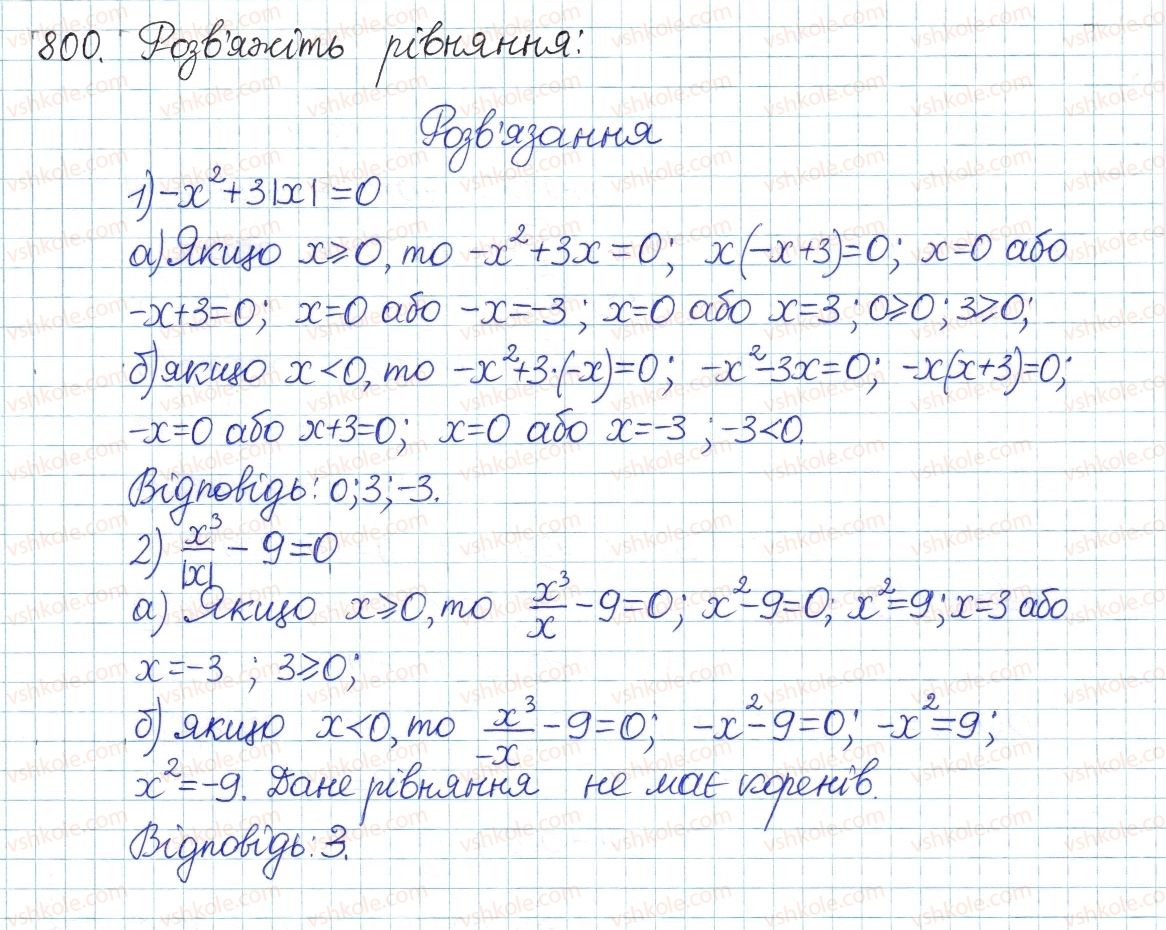 800. Розв'яжіть рівняння:
Розв'язання
1) -x²+3|x|=0
а) Якщо x≥0, то -x²+3x=0; x(-x+3)=0; x=0 або
-x+3=0; x=0 або -x=-3; x=0 або x=3; 0≥0; 3≥0;
б) якщо x<0, то -x²+3·(-x)=0; -x²-3x=0; -x(x+3)=0;
-x=0 або x+3=0; x=0 або x=-3; -3<0.
Відповідь: 0; 3; -3.
2) x³/|x| - 9=0
а) Якщо x≥0, то x³/x - 9=0; x²-9=0; x²=9; x=3 або
x=-3; 3≥0;
б) якщо x<0, то x³/-x - 9=0; -x²-9=0; -x²=9;
x²=-9. Дане рівняння не має коренів.
Відповідь: 3.